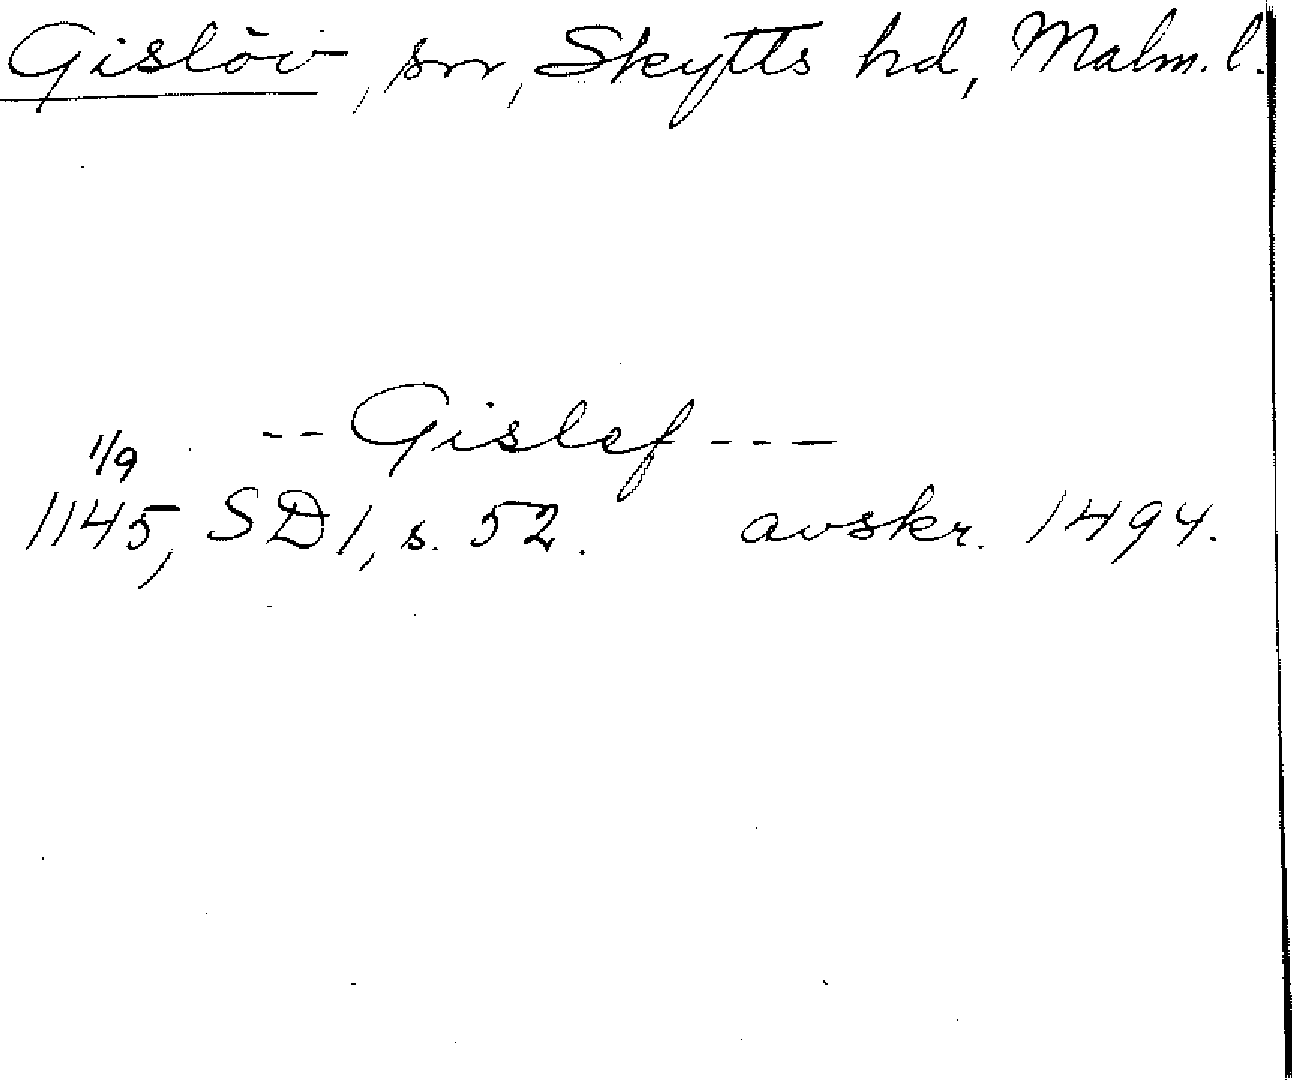 Gislöv, sn, Skytts hd, Malm. l.
-- Gislef ---
1/9
1145, SD 1, s. 52. avskr. 1494.